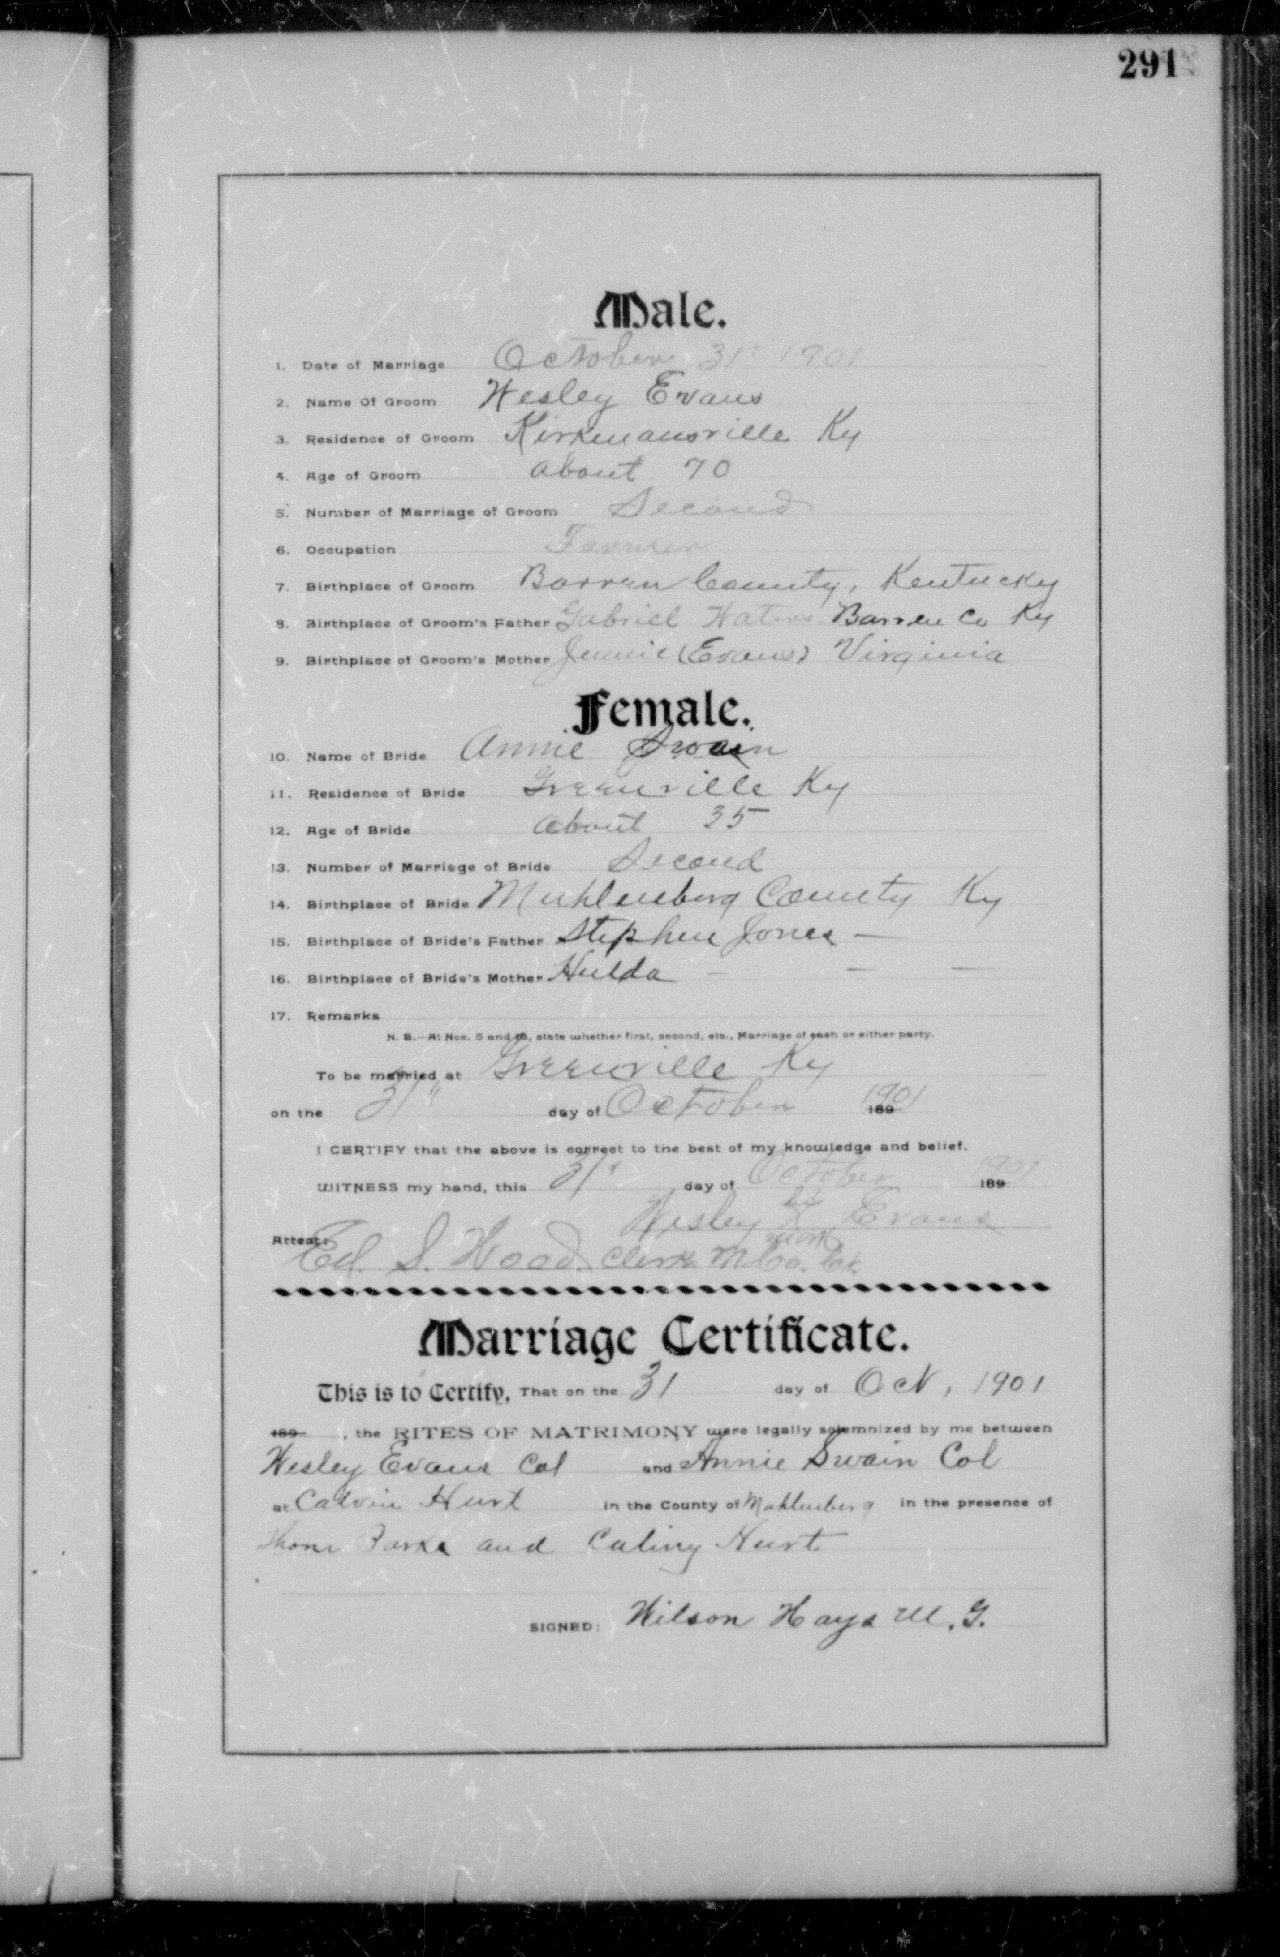 291
Male.
1. Date of Marriage October 31st 1901
2. Name Of Groom Wesley Evans
3. Residence of Groom Kirkmansville Ky
4. Age of Groom about 70
5. Number of Marriage of Groom Second
6. Occupation Farmer
7. Birthplace of Groom Barren County, Kentucky
8. Birthplace of Groom's Father Gabriel Waters Barren Co Ky
9. Birthplace of Groom's Mother Jennie (Evans) Virginia
Female.
10. Name of Bride Annie Swain
11. Residence of Bride Greenville Ky
12. Age of Bride about 35
13. Number of Marriage of Bride Second
14. Birthplace of Bride Muhlenberg County Ky
15. Birthplace of Bride's Father Stephen Jones —
16. Birthplace of Bride's Mother Hulda — — —
17. Remarks
N. B.—At Nos. 5 and 13, state whether first, second, etc., Marriage of each or either party.
To be married at Greenville Ky
on the 31" day of October 1901 189
I CERTIFY that the above is correct to the best of my knowledge and belief.
WITNESS my hand, this 31st day of October 1901 189
Wesley his X mark Evans
Attest: Ed. S. Wood Clerk M. Co. Ct.
Marriage Certificate.
This is to Certify, That on the 31 day of Oct, 1901
189 , the RITES OF MATRIMONY were legally solemnized by me between
Wesley Evans Col and Annie Swain Col
at Calvin Hurt in the County of Muhlenberg in the presence of
and Caliny Hurt
SIGNED: Wilson Hays M. G.